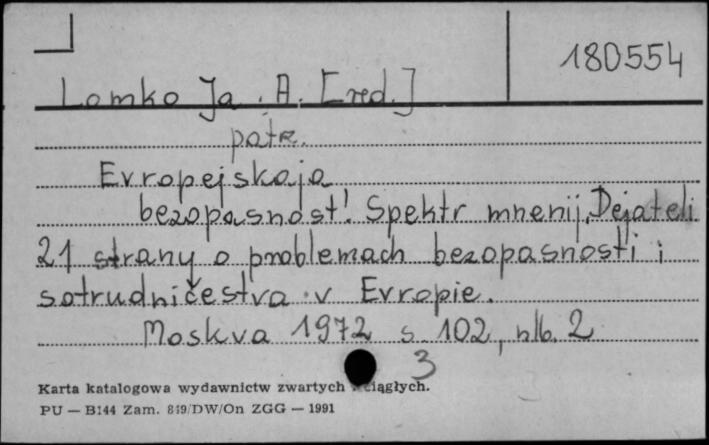 180554
Lomko Ja. A. [red.]
patr.
Evropejskaja
bezopasnost'. Spektr mnenij. Dejateli
21 strany o problemach bezopasnosti i
sotrudničestva v Evropie.
Moskva 1972 s. 102, nlb. 2
3
Karta katalogowa wydawnictw zwartych ciągłych.
PU — B144 Zam. 819/DW/On ZGG — 1991